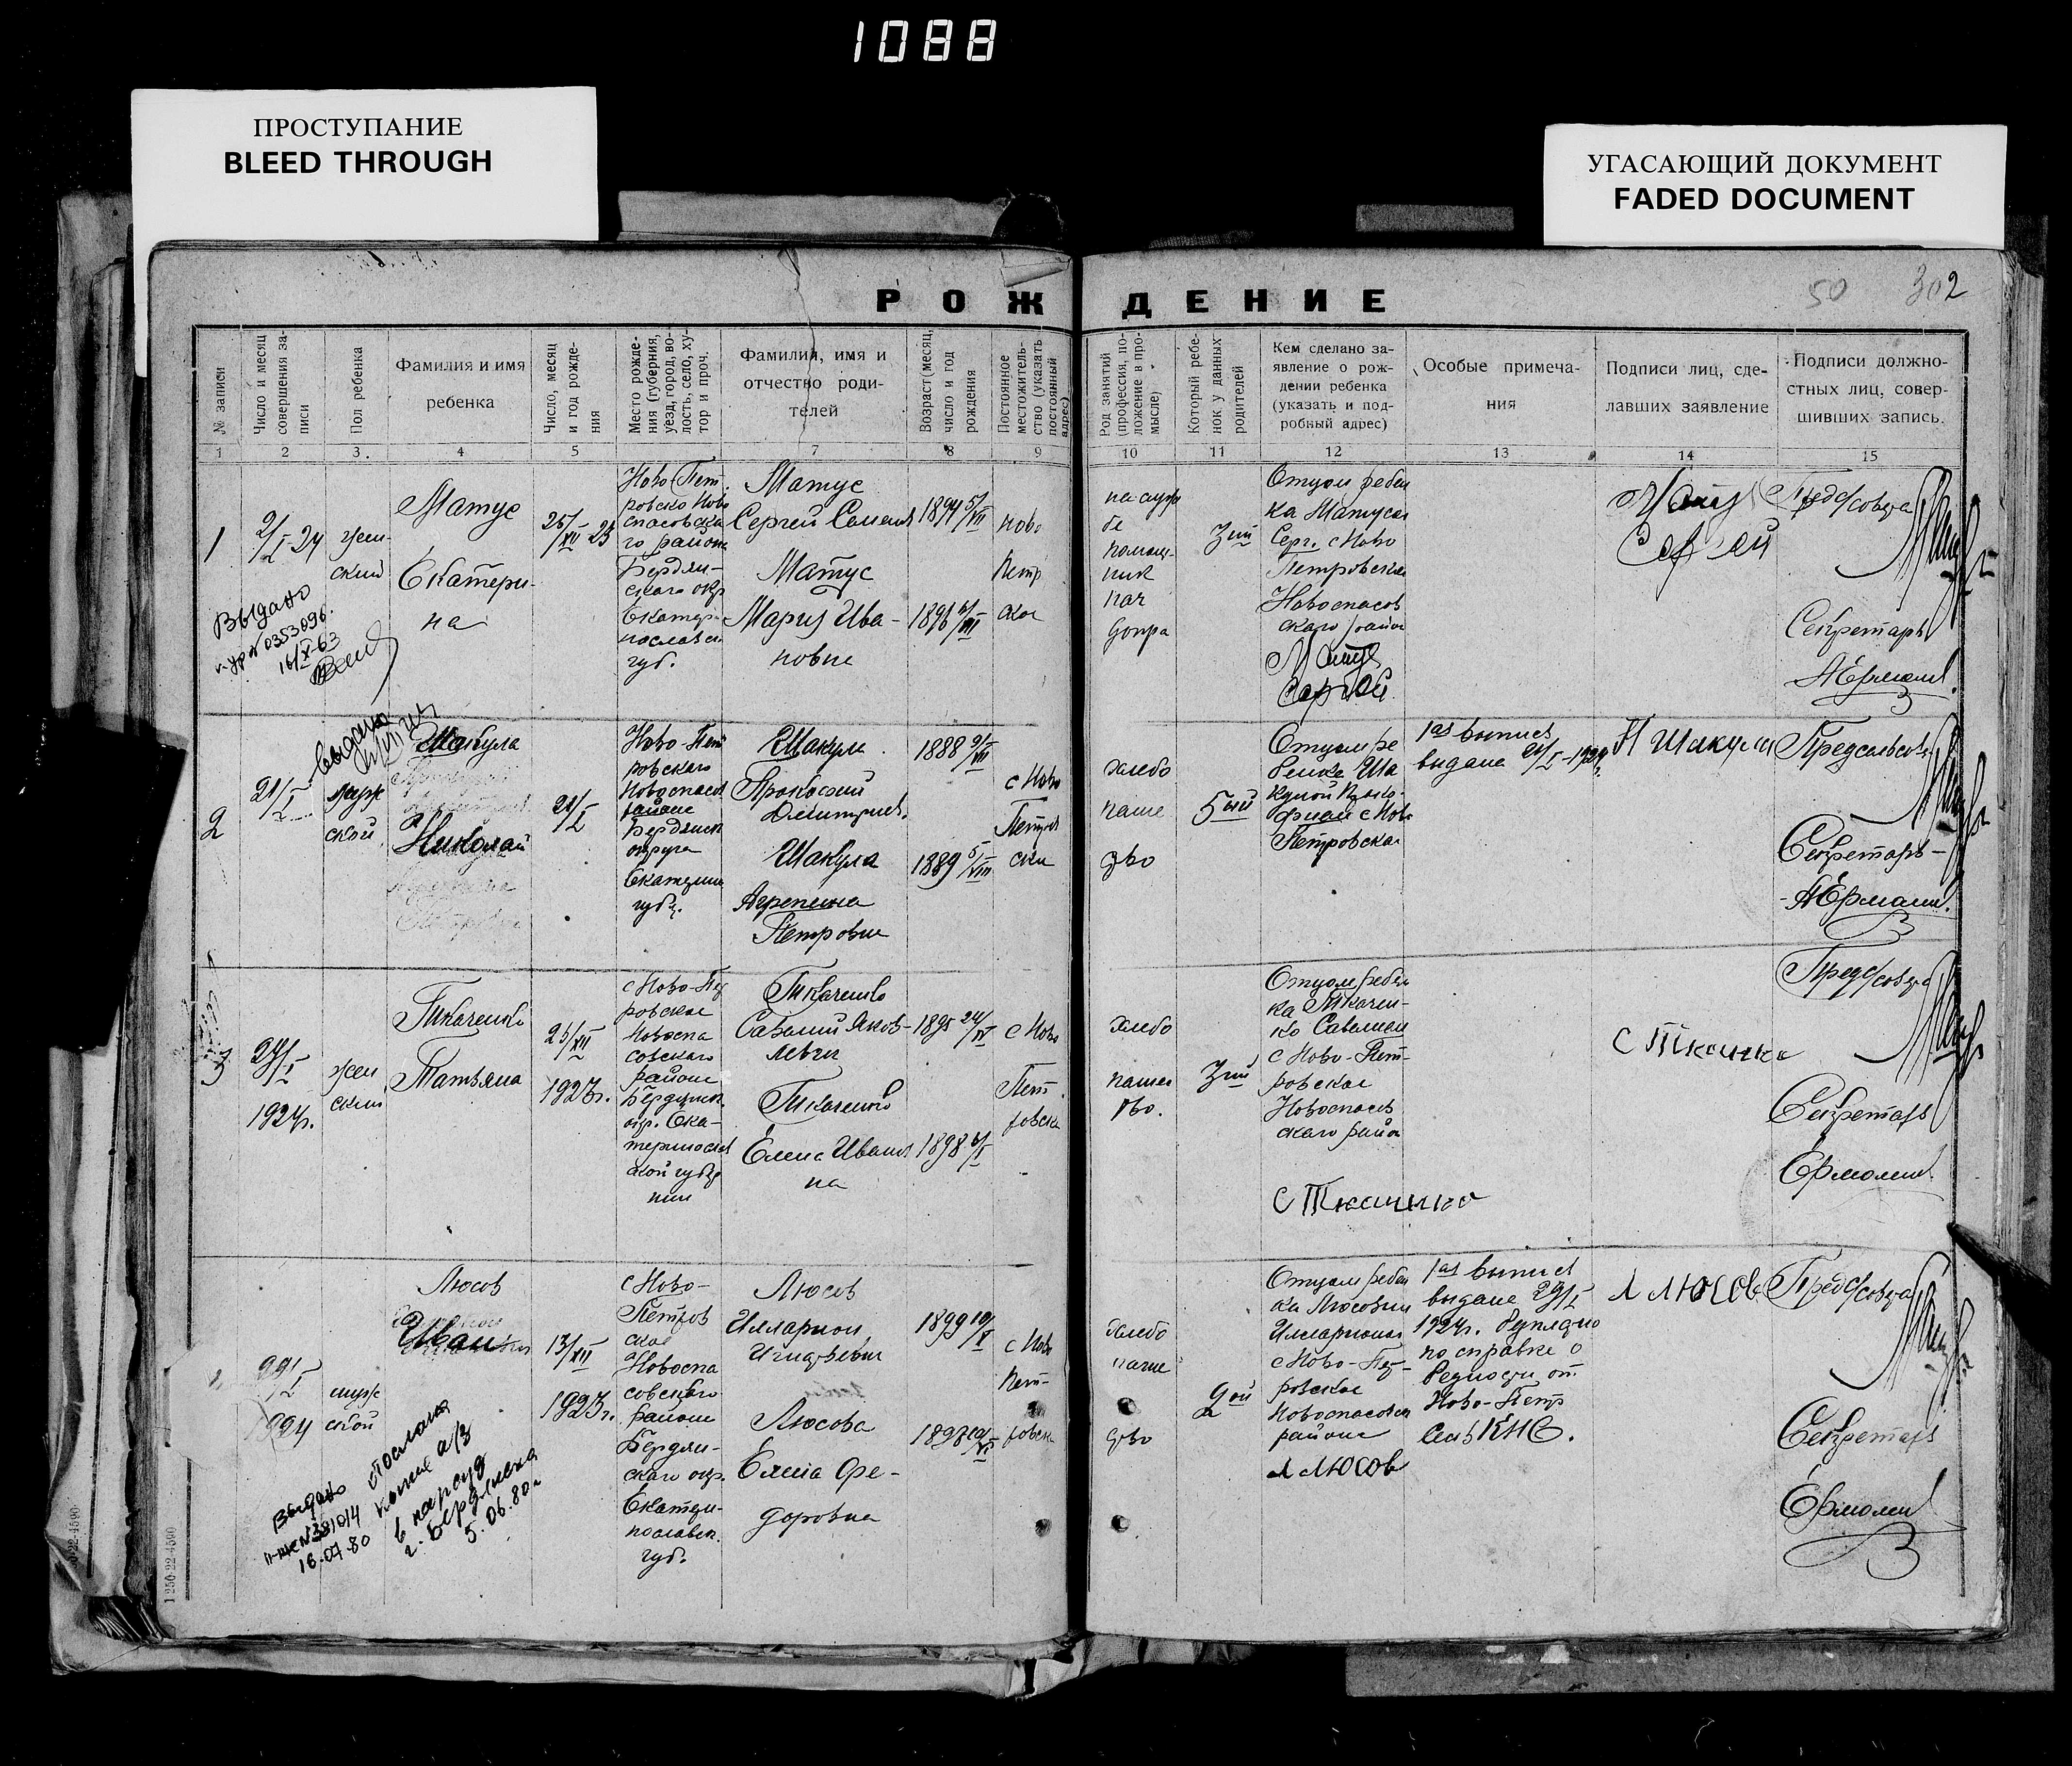 1088
ПРОСТУПАНИЕ
BLEED THROUGH
УГАСАЮЩИЙ ДОКУМЕНТ
FADED DOCUMENT
50 302
РОЖДЕНИЕ
№ записи
Число и месяц
совершения за-
писи
Пол ребенка
Фамилия и имя
ребенка
Число, месяц
и год рожде-
ния
Место рожде-
ния (губерния,
уезд, город, во-
лость, село, ху-
тор и проч.
Фамилия, имя и
отчество роди-
телей
Возраст (месяц,
число и год
рождения
Постоянное
местожитель-
ство (указать
постоянный
адрес)
Род занятий
(профессия, по-
ложение в про-
мысле)
Который ребе-
нок у данных
родителей
Кем сделано за-
явление о рож-
дении ребенка
(указать и под-
робный адрес)
Особые примеча-
ния
Подписи лиц, сде-
лавших заявление
Подписи должно-
стных лиц, совер-
шивших запись.
1 2 3. 4 5 7 8 9 10 11 12 13 14 15
1
9/I-24
жен-
ский
Матус
Екатери-
на
25/XII 23
Ново Пет
ровско Ново
спасовска
го района
Бердян-
ского окр
Екатери
нославск
губ.
Матус
Сергей Семенов
Матус
Мария Ива-
новна
1894 5/VII
1896
Ново
Петр
ская
3ий
Отцом ребен
ка Матусом
Серг. с Ново
Петровская
Новоспасов
ского район
Матус
Сергей
Матус
Сергей
Пред с/совета
Секретарь
Выдано
16/X-63
2
21/I
Выдано
муж
ской
Шакула
Николай
21/I
Ново-Пет
ровского
Новоспасов
района
Бердянск
округа
Екатерин
губ.
Шакула
Прокофий
Дмитриев.
Шакула
Агрепина
Петровна
1888 9/VII
1889 5/VIII
с Ново
Петров
ски
хлебо
паше
ство
5ый
Отцом ре
бенка Ша
кулой Проко-
фием с Ново
Петровская
1ая выпись
выдана 21/I-1924г.
П Шакула
Предсельсов
Секретарь-
3
24/I
1924г.
жен
ский
Ткаченко
Татьяна
25/XII
1923г.
с Ново-Пет
ровское
Новоспа
совского
района
Бердянск.
окр. Ека-
теринослав
ской губер
нии
Ткаченко
Савелий Яков-
левич
Ткаченко
Елена Иванов
на
1895 24/IV
1898 6/I
с Ново
Пет
ровска
хлебо
пашес
тво.
3ий
Отцом ребен
ка Ткачен-
ко Савелием
с Ново-Пет-
ровское
Новоспасов
ского район
С Ткаченко
С Ткаченко
Пред с/совета
Секретарь
29/I
1924
муж
ской
Люсов
Иван
13/XII
1923г.
с Ново-
Петров
ское
Новоспа
совского
района
Бердян-
ского окр.
Екатери-
нославск.
губ.
Люсов
Илларион
Игнатьевич
Люсова
Елена Фе-
доровна
1899 19/V
с Ново
Пет-
ровска
хлебо
паше
ство
2ой
Отцом ребен
ка Люсовым
Илларионом
с Ново-Пет-
ровское
Новоспасовск
района
Л Люсов
1ая выпись
выдана 29/I
1924г. бесплатно
по справке о
бедности от
Ново-Петр
сель КНС.
Л Люсов
Пред с/совета
Секретарь
Выдано
16.07.80
Послана
копия а/з
в нарсуд
г. Бердянска
5.06.80г
1250-22-4590